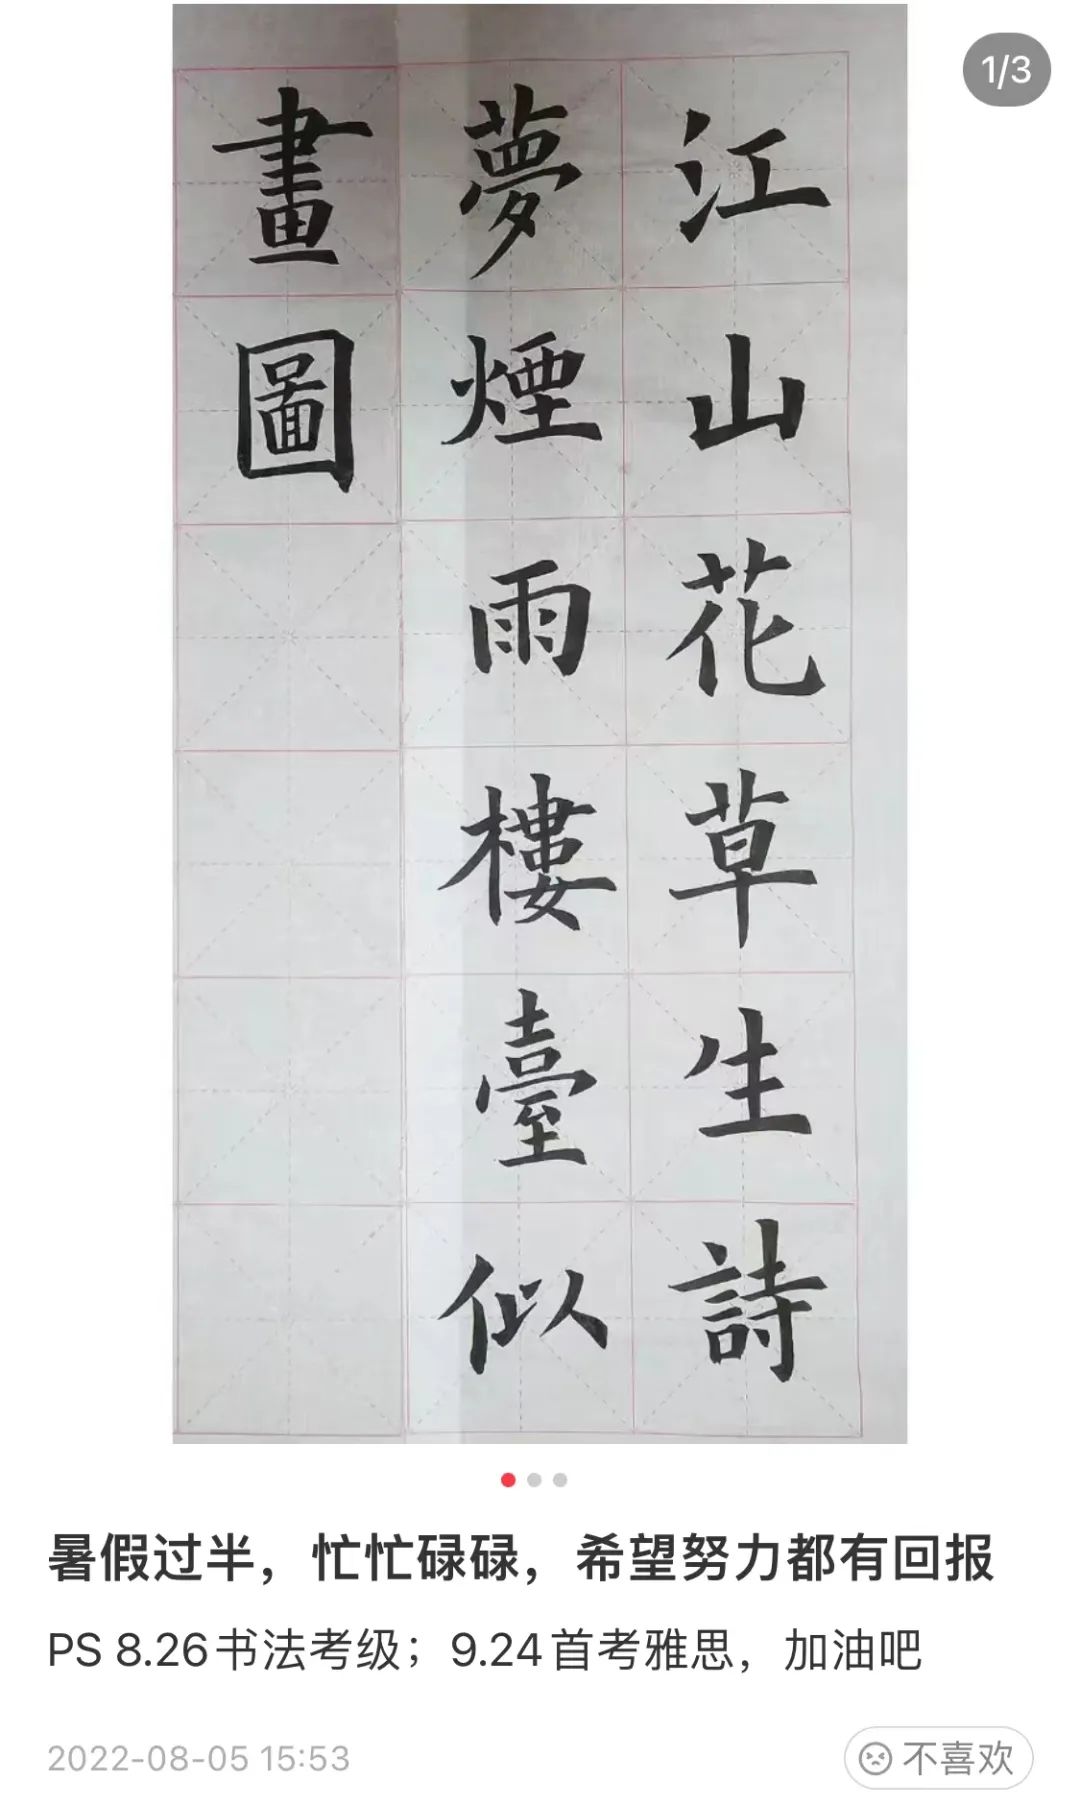 1/3
江山花草生詩
夢煙雨樓臺似
畫圖
暑假过半，忙忙碌碌，希望努力都有回报
PS 8.26书法考级；9.24首考雅思，加油吧
2022-08-05 15:53
不喜欢